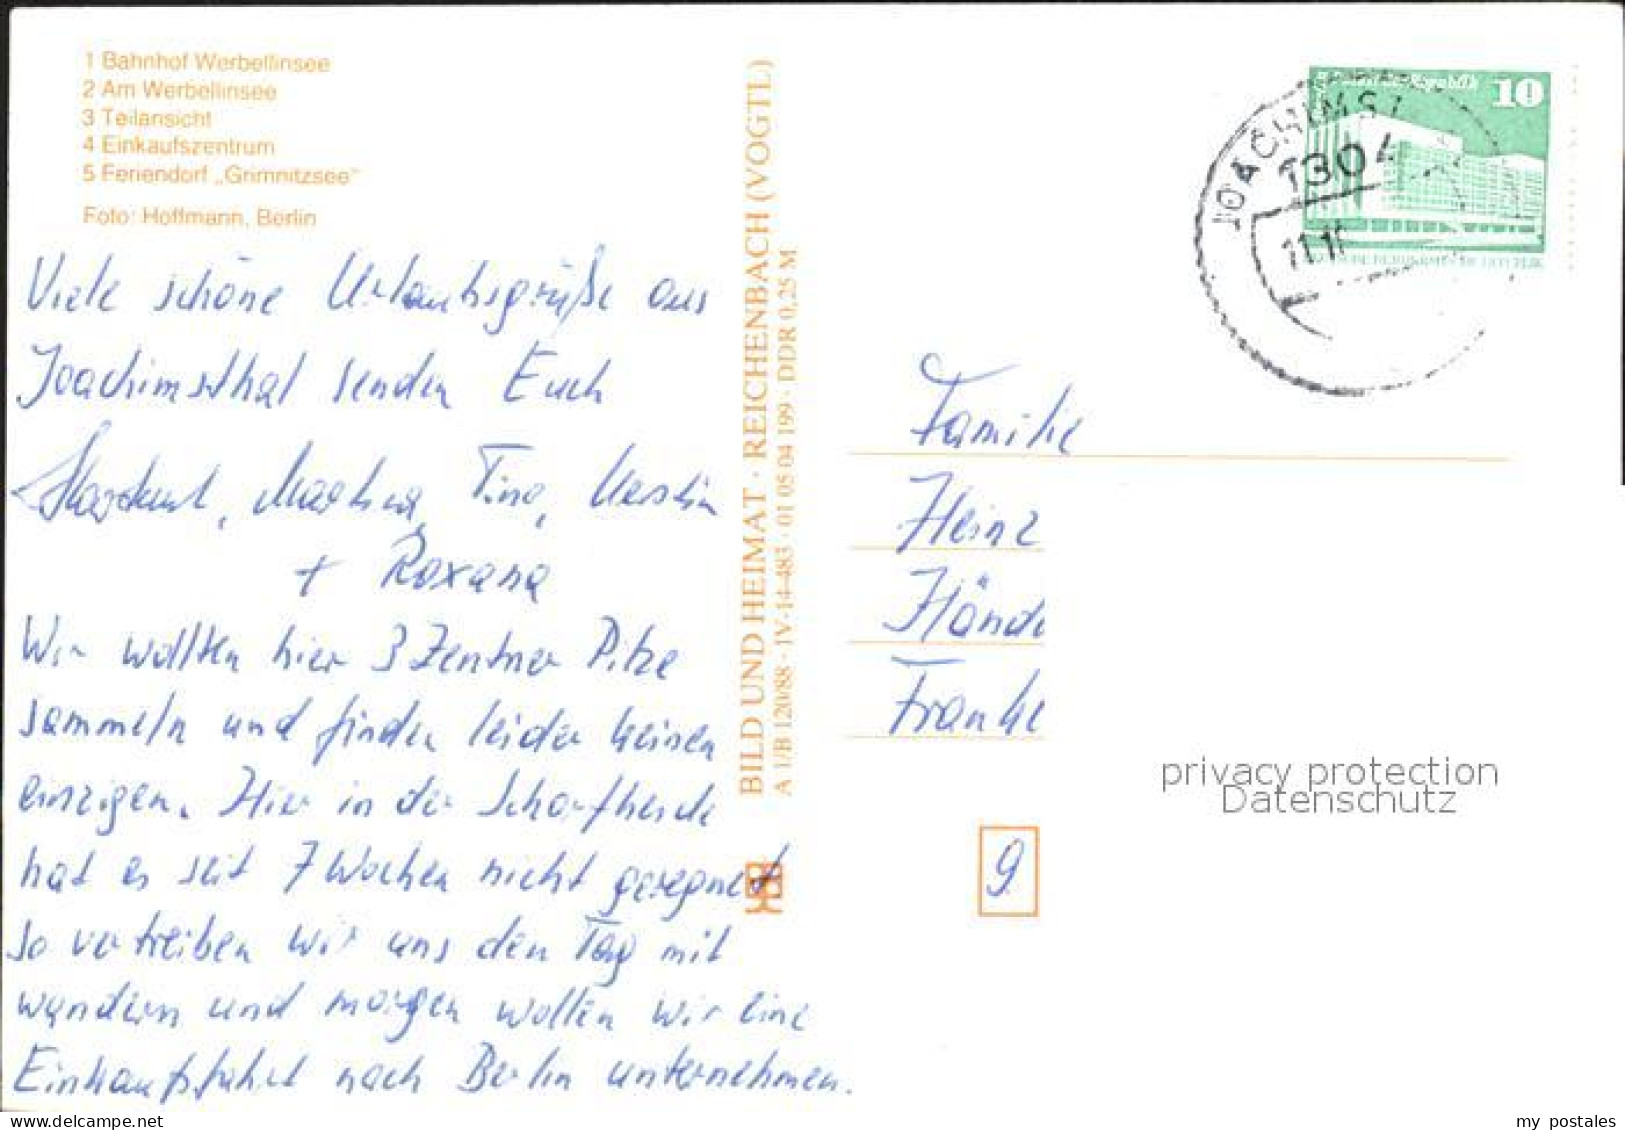 1 Bahnhof Werbellinsee
2 Am Werbellinsee
3 Teilansicht
4 Einkaufszentrum
5 Feriendorf „Grimnitzsee"
Foto: Hoffmann, Berlin
Viele schöne Urlaubsgrüße aus
Joachimsthal senden Euch
Martina, Tina, Kerstin
+ Roxana
Wir wollten hier 3 Zentner Pilze
sammeln und finden leider keinen
einzigen. Hier in der Schorfheide
hat es seit 7 Wochen nicht geregnet
so vertreiben wir uns den Tag mit
wandern und morgen wollen wir eine
Einkaufsfahrt nach Berlin unternehmen.
BILD UND HEIMAT · REICHENBACH (VOGTL)
A 1/B 120/88 · IV-14-483 · 01 05 04 199 · DDR 0,25 M
10
JOACHIMST
1304
Familie
Heinz
Franke
9
privacy protection
Datenschutz
my postales